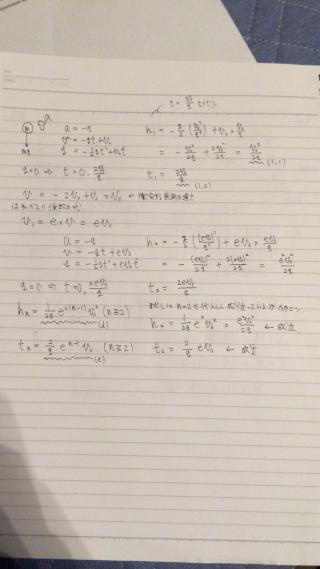 t = v₀/g を代入
a
m
mg
a = -g
v = -gt + v₀
y = -½gt² + v₀t
h₁ = -g/2 (v₀²/g²) + v₀ × v₀/g
= -v₀²/2g + 2v₀²/2g = v₀²/2g (1,1)
y=0 ⇒ t = 0, 2v₀/g
t₁ = 2v₀/g (1,2)
v = -2v₀ + v₀ = -v₀ ←
はねかえり係数
v₁ = e × v = ev₀
a = -g
v = -gt + ev₀
y = -½gt² + ev₀t
h₂ = -g/2 {(ev₀)²/g²} + ev₀ × ev₀/g
= -(ev₀)²/2g + 2(ev₀)²/2g = e²v₀²/2g
y=0 ⇒ t=0, 2ev₀/g
t₂ = 2ev₀/g
hₙ = 1/2g e^{2(n-1)} v₀² (n≧2)
(d)
n=2を代入して成り立っている
h₂ = 1/2g e² v₀² = e²v₀²/2g ← 成立
tₙ = 2/g e^{n-1} v₀ (n≧2)
(e)
t₂ = 2/g ev₀ ← 成立